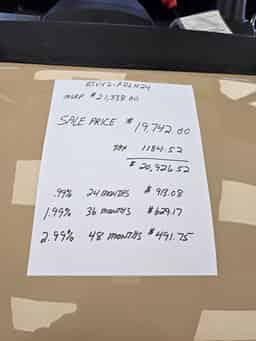 MSRP
SALE PRICE $ 19,742.00
TAX 1184.52
$ 20,926.52
.99% 24 MONTHS $ 913.08
1.99% 36 MONTHS $629.17
2.99% 48 MONTHS $491.75